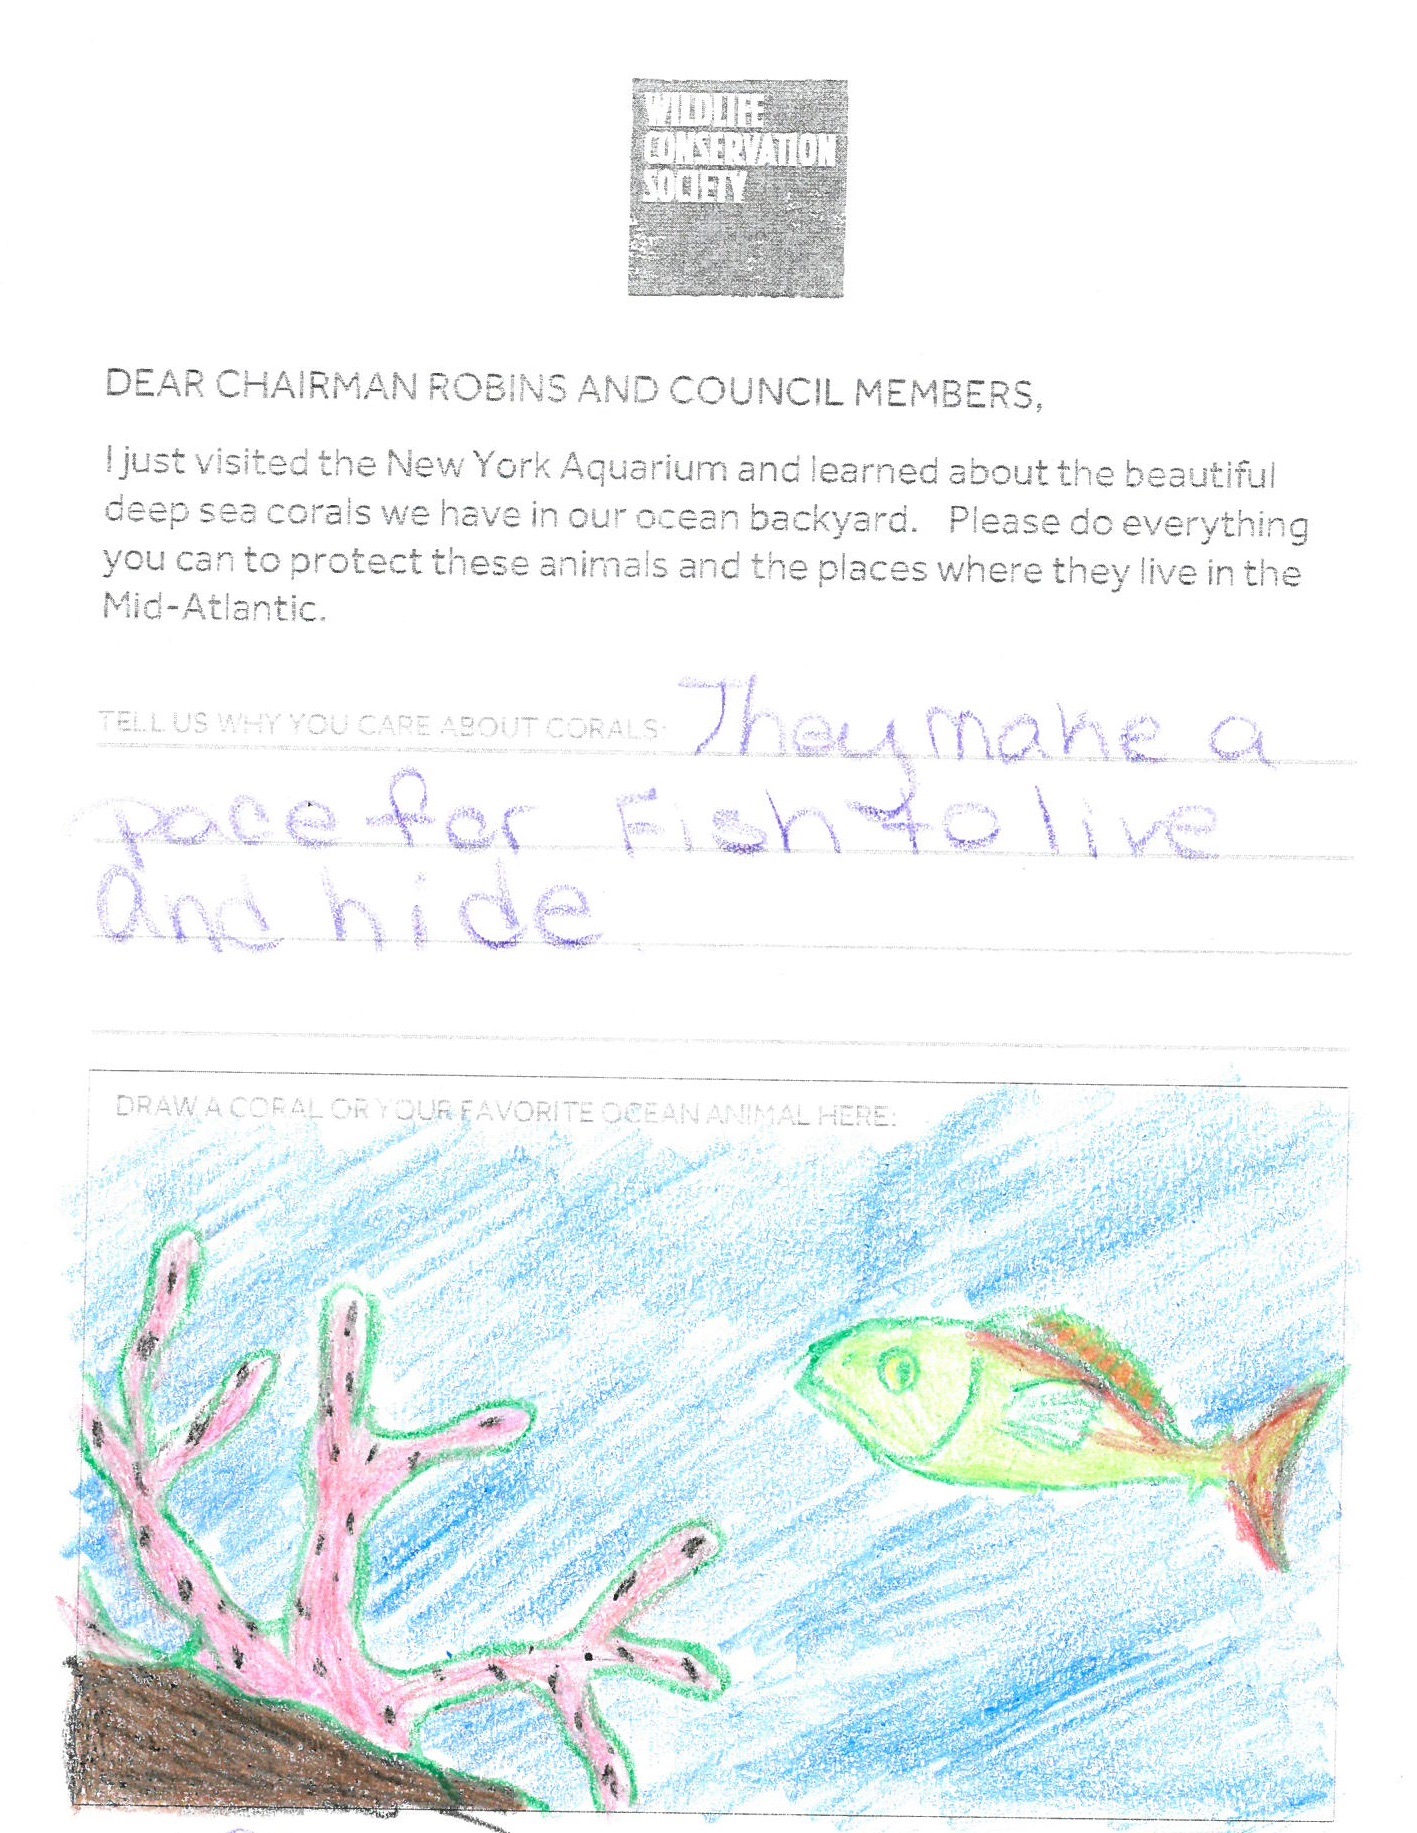 WILDLIFE
CONSERVATION
SOCIETY
DEAR CHAIRMAN ROBINS AND COUNCIL MEMBERS,
I just visited the New York Aquarium and learned about the beautiful
deep sea corals we have in our ocean backyard. Please do everything
you can to protect these animals and the places where they live in the
Mid-Atlantic.
TELL US WHY YOU CARE ABOUT CORALS: They make a
pace for Fish to live
and hide
DRAW A CORAL OR YOUR FAVORITE OCEAN ANIMAL HERE: